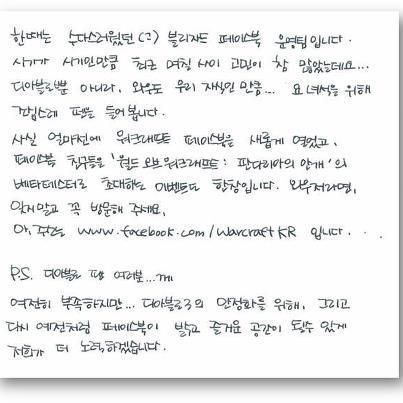 한때는 수다스러웠던 (?) 블리자드 페이스북 운영팀입니다.
시기가 시기인만큼 최근 며칠 사이 고민이 참 많았는데요...
디아블로뿐 아니라, 와우도 우리 자식인 만큼... 요 녀석을 위해
간만에 펜을 들어봅니다.
사실 얼마전에 워크래프트 페이스북을 새롭게 열었고,
페이스북 친구들을 '월드 오브 워크래프트: 판다리아의 안개'의
베타테스터로 초대하는 이벤트도 한창입니다. 와우저라면,
잊지말고 꼭 방문해 주세요.
아, 주소는 www.facebook.com/WarcraftKR 입니다. . .
P.S. 디아블로 팬 여러분...께
여전히 부족하지만... 디아블로3의 안정화를 위해, 그리고
다시 예전처럼 페이스북이 밝고 즐거운 공간이 될수 있게
저희가 더 노력하겠습니다.